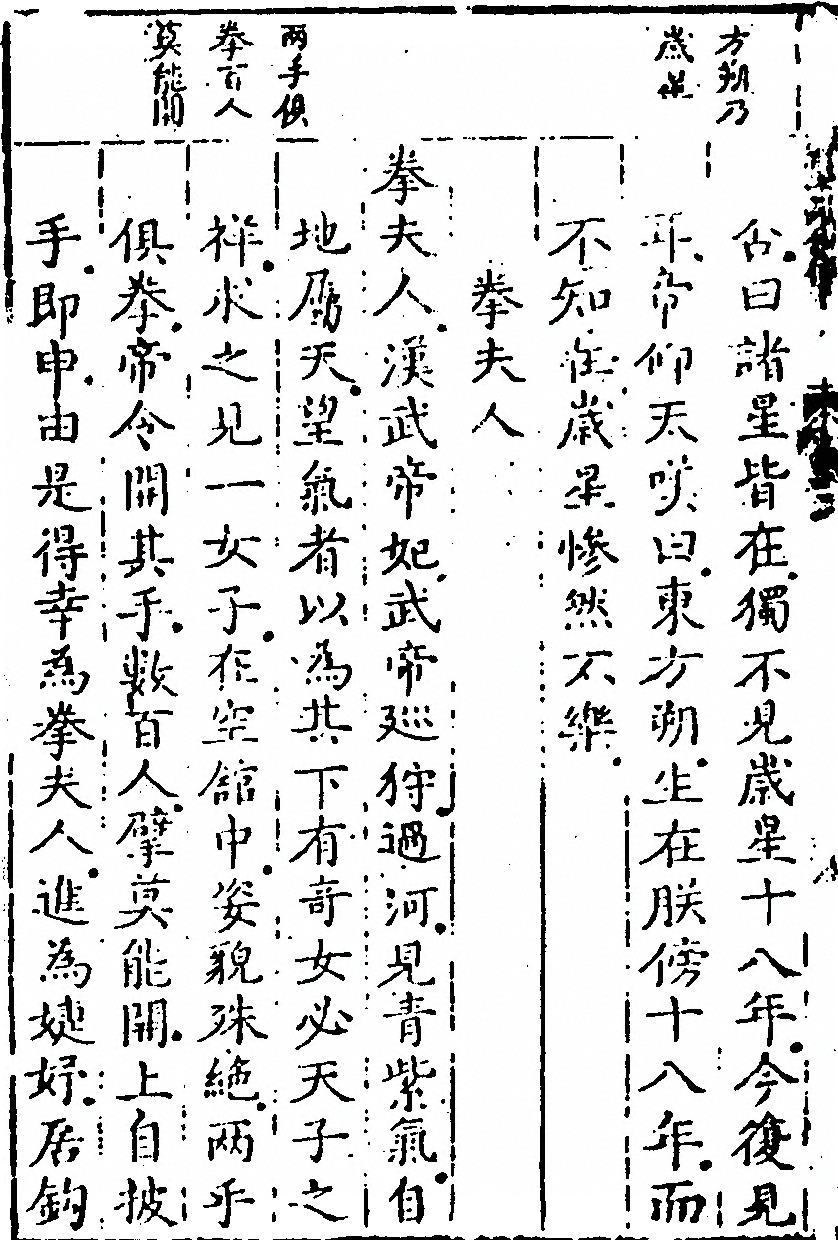 方朔乃
歲星
公曰諸星皆在獨不見歲星十八年今復見
耳帝仰天嘆曰東方朔生在朕傍十八年而
不知在歲星慘然不樂
拳夫人
兩手俱
拳百人
莫能開
拳夫人漢武帝妃武帝廵狩過河見青紫氣自
地屬天望氣者以為其下有奇女必天子之
祥求之見一女子在空舘中姿貌殊絶兩手
俱拳帝令開其手數百人擘莫能開上自披
手即申由是得幸為拳夫人進為婕妤居鉤